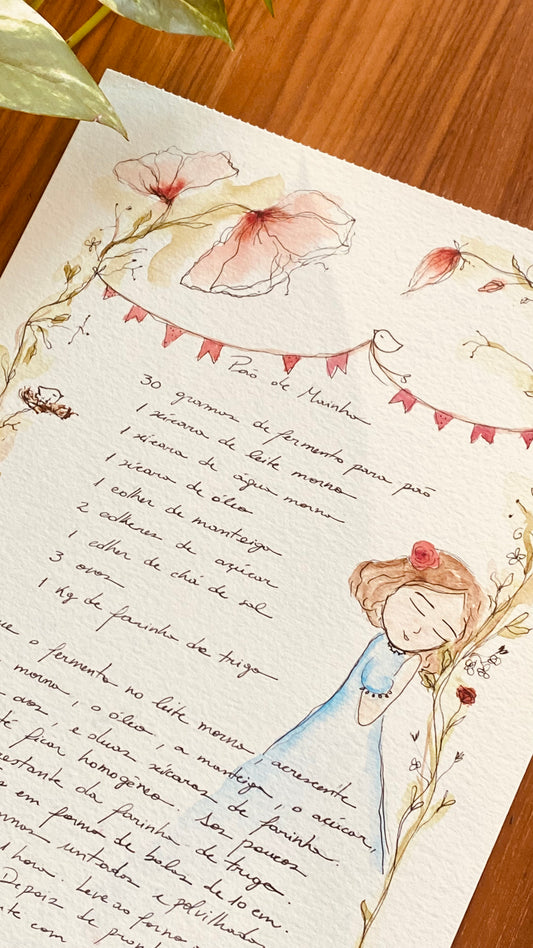 Pão de Mainha
30 gramas de fermento para pão
1 xícara de leite morno
1 xícara de água morna
1 xícara de óleo
1 colher de manteiga
2 colheres de açúcar
1 colher de chá de sal
3 ovos
1 Kg de farinha de trigo
ue o fermento no leite morno, acrescente
morna, o óleo, a manteiga, o açúcar,
ovos, e duas xícaras de farinha.
té ficar homogêneo. Aos poucos
restante da farinha de trigo.
s em forma de bolas de 10 cm.
untados e polvilhado
1 hora. Leve ao forno
Depois de
te com